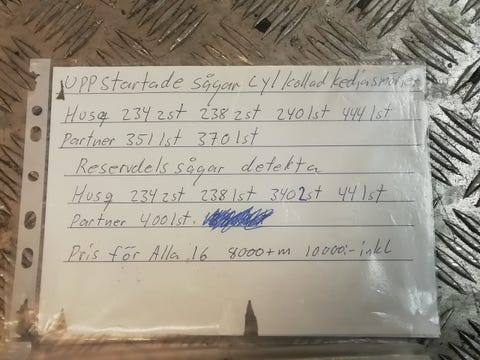 UPPstartade sågar cyl/kollad kedjasmörjer
Husq 234 2st 238 2st 240 1st 444 1st
Partner 351 1st 370 1st
Reservdels sågar detekta
Husq 234 2st 238 1st 340 2st 44 1st
Partner 400 1st.
Pris för Alla 16 8000+m 10000:- inkl